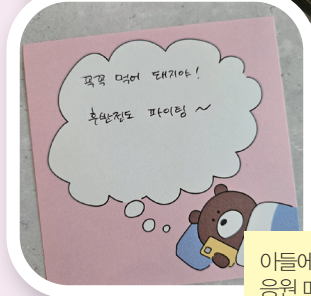 꼭꼭 먹어 돼지야!
후반전도 파이팅 ~
아들에
응원 미